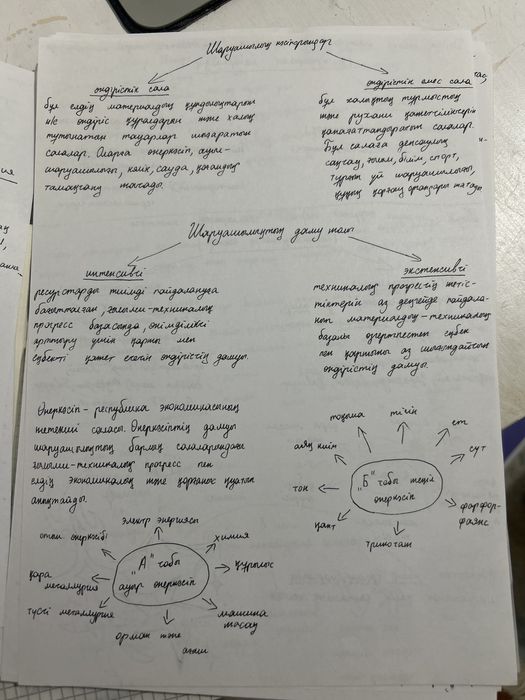 Шаруашылық кәсіпорындар
өндірістік сала
бұл елдің материалдық құндылықтарын
н/е өндіріс құралдарын және халық
тұтынатын тауарлар шығаратын
салалар. Оларға өнеркәсіп, ауыл-
шаруашылығы, көлік, сауда, қоғамдық
тамақтану жатады.
өндірістік емес сала
бұл халықтың тұрмыстық
және рухани қажеттіліктерін
қанағаттандыратын салалар.
Бұл салаға денсаулық
сақтау, ғылым, білім, спорт,
тұрғын үй шаруашылығы,
құқық қорғау органдары жатады
Шаруашылықтың даму жолы
интенсивті
ресурстарды тиімді пайдалануға
бағытталған, ғылыми-техникалық
прогресс базасында, өнімділікті
арттыру үшін қаржы мен
еңбекті қажет ететін өндірістің дамуы.
экстенсивті
техникалық прогрестің жетіс-
тіктерін аз деңгейде пайдала-
нып материалдық-техникалық
базаны өзгертпестен еңбек
пен қаржыны аз шығындайтын
өндірістің дамуы.
Өнеркәсіп - республика экономикасының
жетекші саласы. Өнеркәсіптің дамуы
шаруашылықтың барлық салаларындағы
ғылыми-техникалық прогресс пен
елдің экономикалық және қорғаныс қуатын
анықтайды.
"А" тобы
ауыр өнеркәсіп
электр энергиясы
химия
құрылыс
машина
жасау
орман және
ағаш
түсті металлургия
қара
металлургия
отын өнеркәсібі
"Б" тобы жеңіл
өнеркәсіп
тоқыма
тігін
ет
сүт
фарфор-
фаянс
трикотаж
қант
тон
аяқ киім